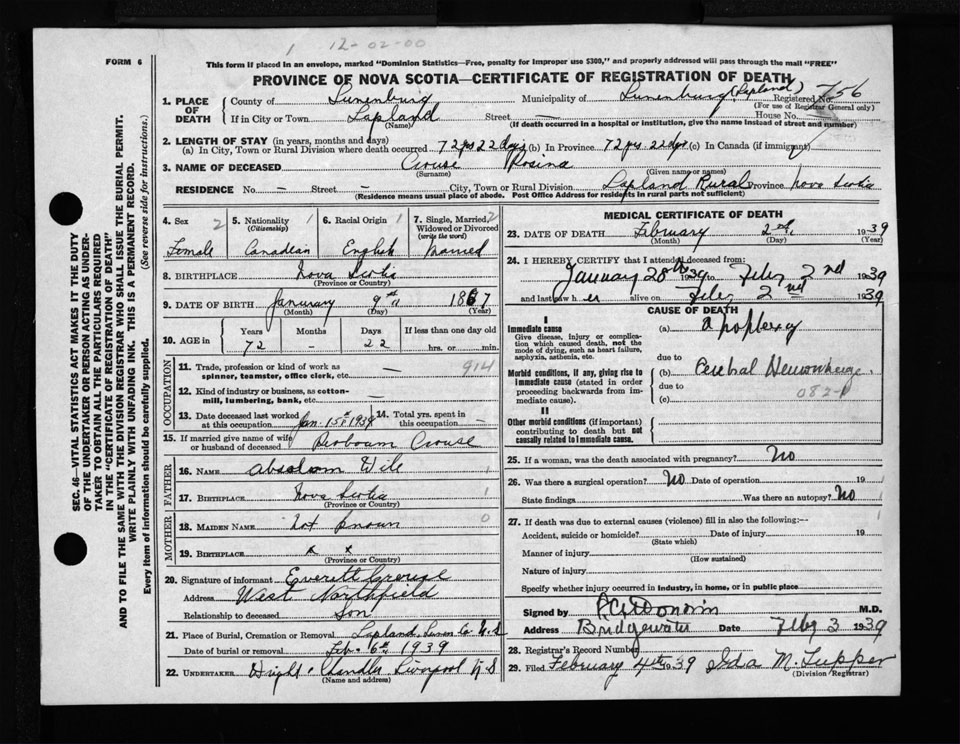 1 12-02-00
FORM 6
This form if placed in an envelope, marked "Dominion Statistics—Free, penalty for improper use $300," and properly addressed will pass through the mail "FREE"
PROVINCE OF NOVA SCOTIA—CERTIFICATE OF REGISTRATION OF DEATH
1. PLACE OF DEATH County of Lunenburg Municipality of Lunenburg (Lapland) Registered No. 756
(For use of Registrar General only)
If in City or Town Lapland Street — House No.
(Name) (If death occurred in a hospital or institution, give the name instead of street and number)
2. LENGTH OF STAY (in years, months and days)
(a) In City, Town or Rural Division where death occurred 72 yrs 22 days (b) In Province 72 yrs. 22 dys (c) In Canada (if immigrant)
3. NAME OF DECEASED Crouse Rosina
(Surname) (Given name or names)
RESIDENCE No. — Street — City, Town or Rural Division Lapland Rural Province Nova Scotia
(Residence means usual place of abode. Post Office Address for residents in rural parts not sufficient)
4. Sex 2 5. Nationality 1 6. Racial Origin 1 7. Single, Married, 2
(Citizenship) Widowed or Divorced
(write the word)
Female Canadian English Married
8. BIRTHPLACE Nova Scotia
(Province or Country)
9. DATE OF BIRTH January 9th 1867
(Month) (Day) (Year)
10. AGE in Years Months Days If less than one day old
72 — 22 hrs. or min.
OCCUPATION
11. Trade, profession or kind of work as
spinner, teamster, office clerk, etc. — 914
12. Kind of industry or business, as cotton-
mill, lumbering, bank, etc. —
13. Date deceased last worked at this occupation Jan. 15th 1939 14. Total yrs. spent in this occupation —
15. If married give name of wife
or husband of deceased Crouse
FATHER
16. NAME Absalom Wile 1
17. BIRTHPLACE Nova Scotia 1
(Province or Country)
MOTHER
18. MAIDEN NAME Not known 0
19. BIRTHPLACE x x
(Province or Country)
20. Signature of informant Everett Crouse
Address West Northfield
Relationship to deceased Son
21. Place of Burial, Cremation or Removal Lapland, Lunen Co N.S
Date of burial or removal Feb. 6th 1939
22. UNDERTAKER Wright & Chandler Liverpool N.S
(Name and address)
MEDICAL CERTIFICATE OF DEATH
23. DATE OF DEATH February 2nd 1939
(Month) (Day) (Year)
24. I HEREBY CERTIFY that I attended deceased from:
January 28th 1939 to Feby 2nd 1939
and last saw her alive on Feby 2nd 1939
CAUSE OF DEATH
I
Immediate cause (a) apoplexy
Give disease, injury or complica-
tion which caused death, not the
mode of dying, such as heart failure,
asphyxia, asthenia, etc.
due to
Morbid conditions, if any, giving rise to (b) Cerebral Hemorrhage.
immediate cause (stated in order due to
proceeding backwards from im-
mediate cause). (c) 082-
II
Other morbid conditions (if important)
contributing to death but not
causally related to immediate cause.
25. If a woman, was the death associated with pregnancy? No
26. Was there a surgical operation? No Date of operation 19
State findings Was there an autopsy? No
27. If death was due to external causes (violence) fill in also the following:— 1
Accident, suicide or homicide? Date of injury 19
(State which)
Manner of injury
(How sustained)
Nature of injury
Specify whether injury occurred in industry, in home, or in public place
Signed by M.D.
Address Bridgewater Date Feby 3 1939
28. Registrar's Record Number
29. Filed February 4th 1939 Ida M. Tupper
(Division Registrar)
SEC. 46—VITAL STATISTICS ACT MAKES IT THE DUTY
OF THE UNDERTAKER OR PERSON ACTING AS UNDER-
TAKER TO OBTAIN ALL THE PARTICULARS REQUIRED
IN THE "CERTIFICATE OF REGISTRATION OF DEATH"
AND TO FILE THE SAME WITH THE DIVISION REGISTRAR WHO SHALL ISSUE THE BURIAL PERMIT.
WRITE PLAINLY WITH UNFADING INK. THIS IS A PERMANENT RECORD.
Every item of information should be carefully supplied. (See reverse side for instructions.)